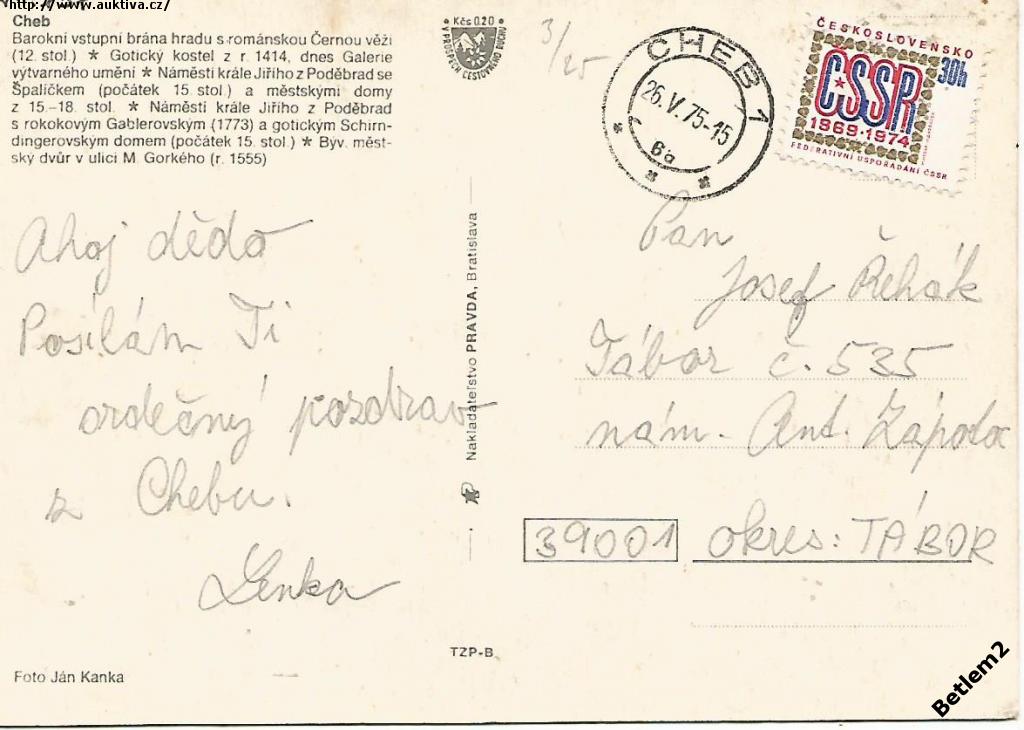 http://www.auktiva.cz/
Cheb
Barokní vstupní brána hradu s románskou Černou věží
(12. stol.) ★ Gotický kostel z r. 1414, dnes Galerie
výtvarného umění ★ Náměstí krále Jiřího z Poděbrad se
Špalíčkem (počátek 15. stol.) a městskými domy
z 15.-18. stol. ★ Náměstí krále Jiřího z Poděbrad
s rokokovým Gablerovským (1773) a gotickým Schirn-
dingerovským domem (počátek 15. stol.) ★ Býv. měst-
ský dvůr v ulici M. Gorkého (r. 1555)
Ahoj dědo
Posílám Ti
srdečný pozdrav
z Chebu.
Lenka
Foto Ján Kanka
Kčs 0.20
Nakladateľstvo PRAVDA, Bratislava
TZP-B
3/25
CHEB 1
26.V.75-15
6a
ČESKOSLOVENSKO
30h
ČSSR
1969-1974
FEDERATIVNÍ USPOŘÁDÁNÍ ČSSR
Pan
Josef Řehák
Tábor č. 535
nám. Ant. Zápotoc
39001 okres: TÁBOR
Betlem2